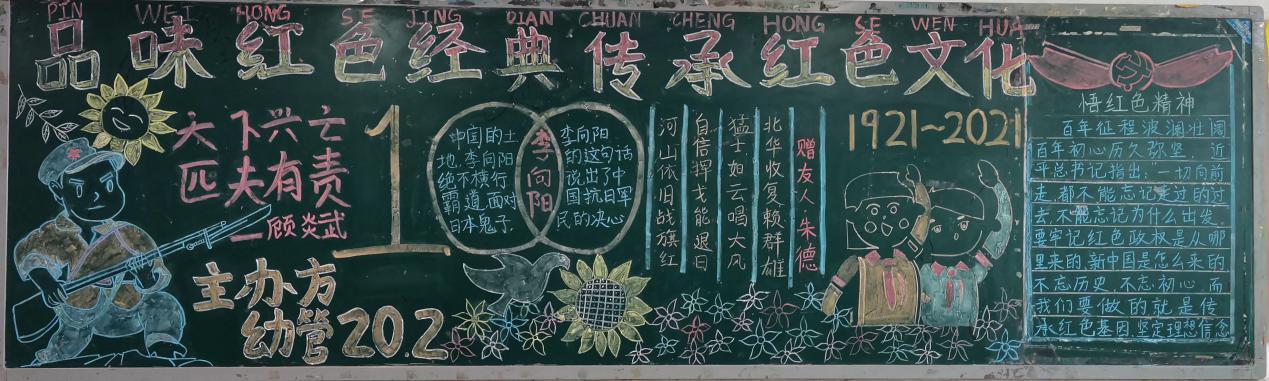 PIN WEI HONG SE JING DIAN CHUAN CHENG HONG SE WEN HUA
品味红色经典传承红色文化
天下兴亡
匹夫有责
—顾炎武
主办方
幼管20.2
100
中国的土
地,李向阳
绝不横行
霸道,面对
日本鬼子.
李向阳
李向阳
的这句话
说出了中
国抗日军
民的决心
赠友人 朱德
北华收复赖群雄
猛士如云唱大风
自信挥戈能退日
河山依旧战旗红
1921~2021
悟红色精神
百年征程波澜壮阔
百年初心历久弥坚,近
平总书记指出:一切向前
走,都不能忘记走过的过
去,不能忘记为什么出发.
要牢记红色政权是从哪
里来的,新中国是怎么来的
不忘历史,不忘初心,而
我们要做的就是传
承红色基因,坚定理想信念